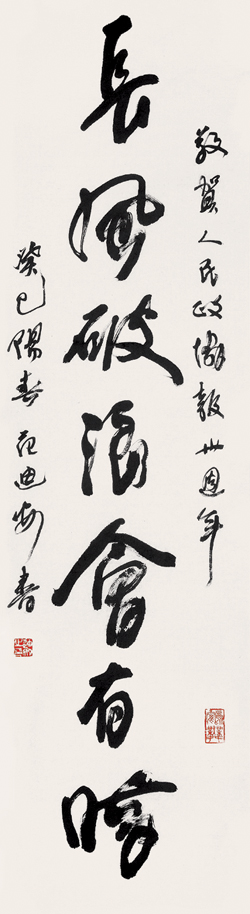 敬賀人民政協報卅周年
長風破浪會有時
癸巳陽春范迪安書